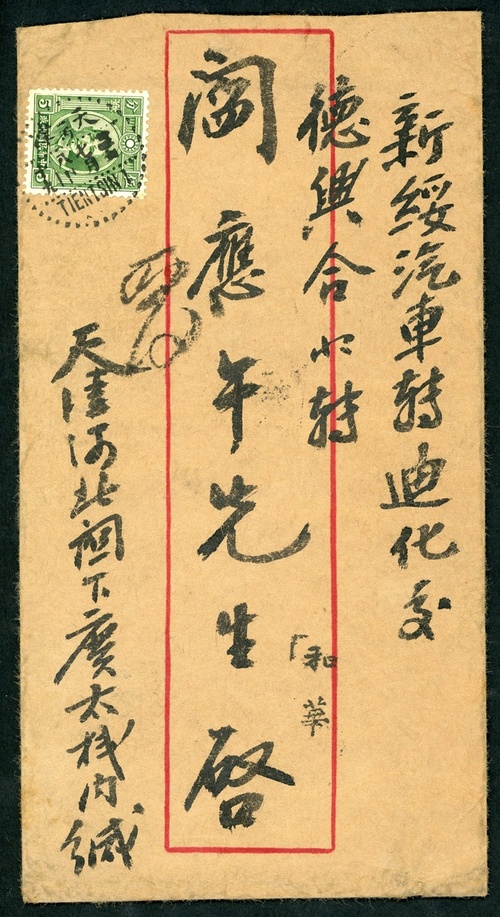 新綏汽車轉迪化交
德興合小轉
閻應午先生啓
「和
華
天津河北関下廣太棧内緘
5
分
TIENTSIN